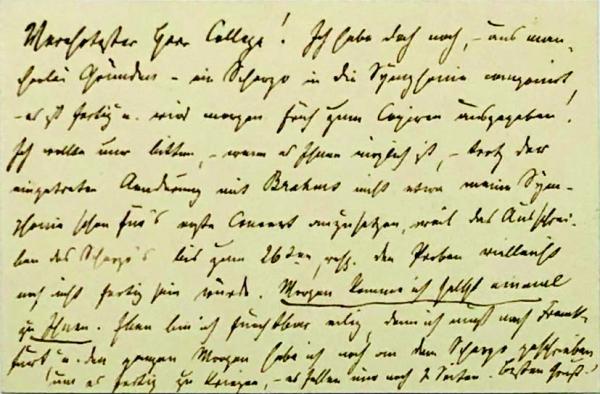 Verehrtester Herr College! Ich habe doch noch, – aus man-
cherlei Gründen – ein Scherzo in die Symphonie componirt,
– es ist fertig u. wird morgen früh zum Copiren ausgegeben!
Ich wollte nur bitten, – wenn es Ihnen möglich ist, – trotz der
eingetreten Aenderung mit Brahms nicht etwa meine Sym-
phonie schon für's erste Concert anzusetzen, weil das Ausschrei-
ben des Scherzo's bis zum 26ten, resp. den Proben vielleicht
noch nicht fertig sein würde. Morgen komme ich selbst einmal
zu Ihnen. Eben bin ich furchtbar eilig, denn ich muß nach Frank-
furt, u. den ganzen Morgen habe ich noch an dem Scherzo geschrieben
um es fertig zu kriegen, – es fehlen nur noch 2 Seiten. Besten Gruß!